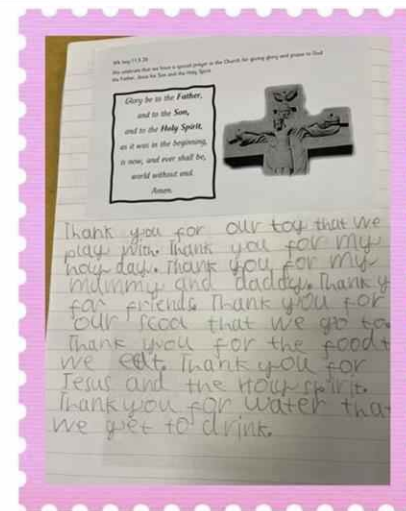 We celebrate that we have a special prayer in the Church for giving glory and praise to God
the Father, Jesus the Son and the Holy Spirit.
Glory be to the Father,
and to the Son,
and to the Holy Spirit,
as it was in the beginning,
is now, and ever shall be,
world without end.
Amen.
Thank you for our toy that we
play with. Thank you for my
holy day. Thank you for my
mummy and daddy. Thank y
for friends Thank you for
our scool that we go to.
Thank you for the food t
we eat. Thank you for
Jesus and the Holy spirit.
Thank you for water that
we get to drink.